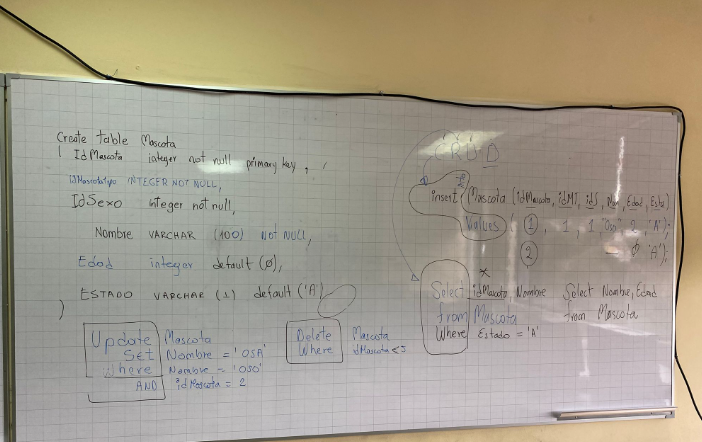 Create table Mascota
( IdMascota integer not null primary key,
INTEGER NOT NULL,
IdSexo integer not null,
Nombre VARCHAR (100) NOT NULL,
Edad integer default (Ø),
ESTADO VARCHAR (1) default ('A')
)
Update Mascota
Set Nombre = 'OSA'
Where Nombre = 'OSO'
AND idMascota = 2
Delete Mascota
Where idMascota
CRUD
insert Mascota (idMascota, idMT, idS, Nom, Edad, Esta)
Values ( 1, 1, 1, "Oso" 2, 'A');
2 Ø 'A');
*
Select idMascota, Nombre
from Mascota
Where Estado = 'A'
Select Nombre, Edad
from Mascota